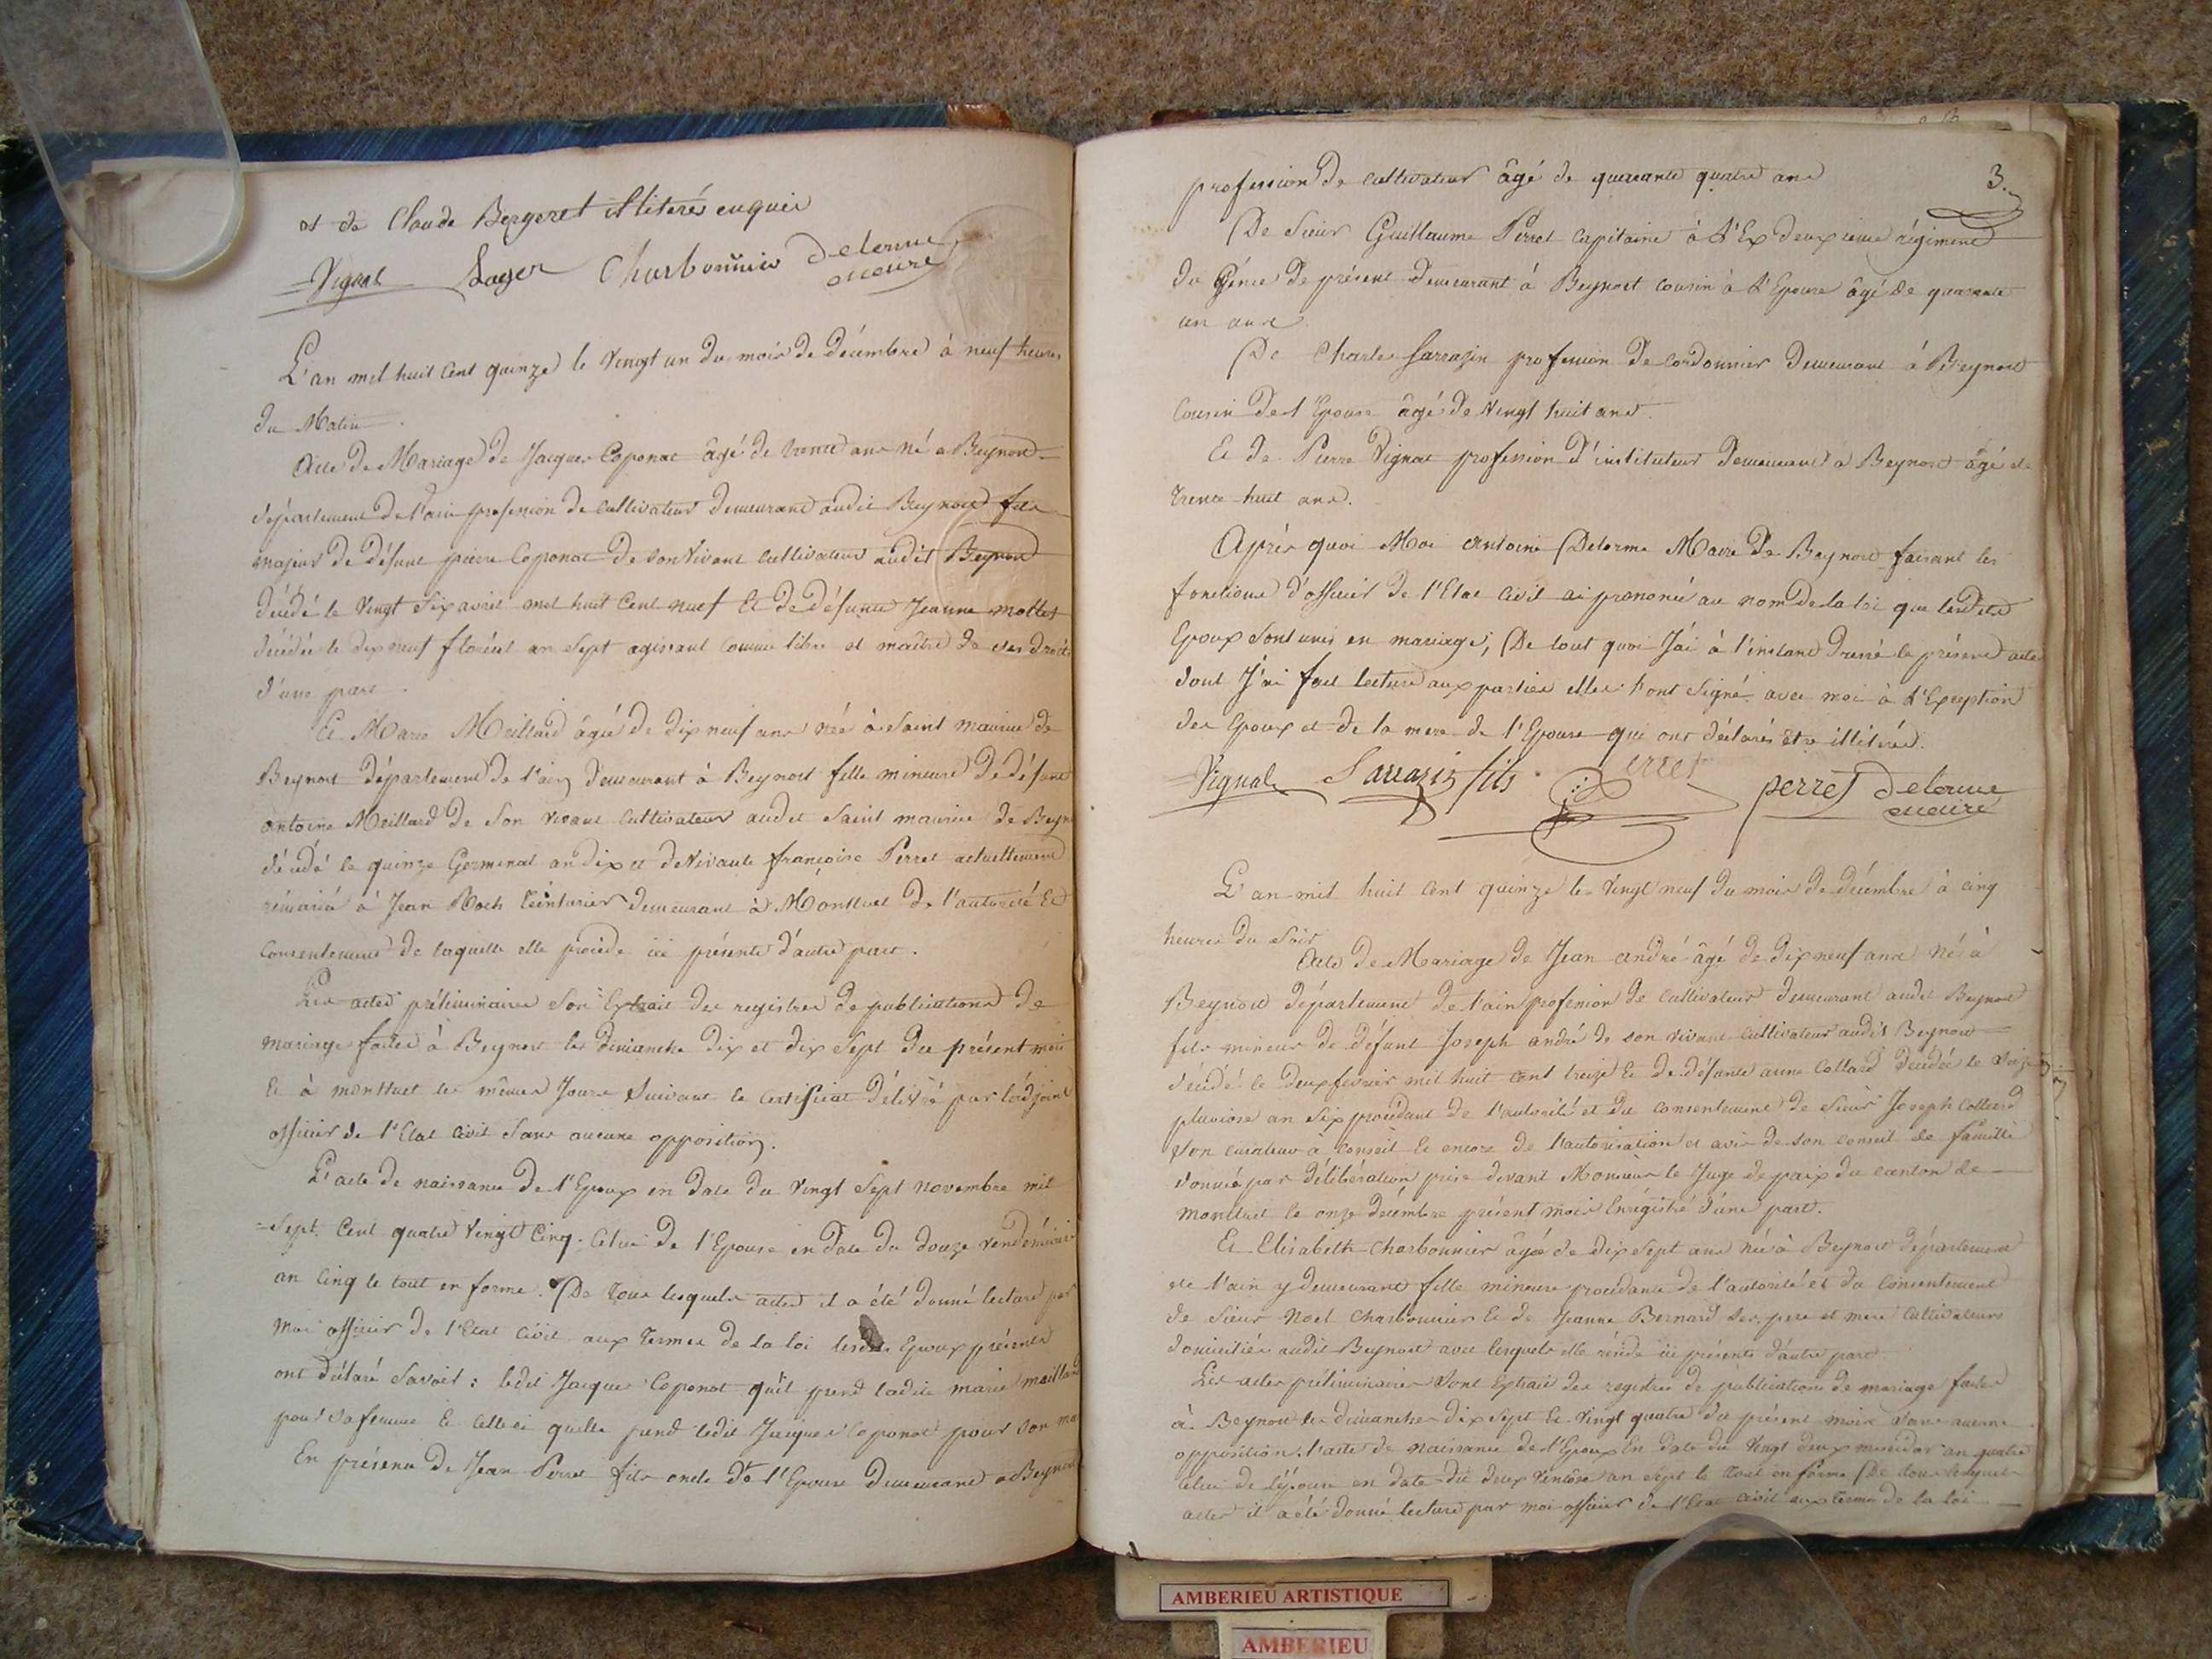 et de Claude Bergeret illiterés enquis
Vignal Loger Charbonnier delorme
maire
L'an mil huit Cent quinze le Vingt un du mois de décembre à neuf heures
du Matin.
Acte de Mariage de Jacques Coponat âgé de trente ans né a Beynost
département de l'ain profession de Cultivateur demeurant audit Beynost fils
majeur de défunt pierre Coponat de son Vivant Cultivateur audit Beynost
décédé le Vingt Six avril mil huit Cent neuf Et de défunte Jeanne mollet
décédée le dix neuf floréal an Sept agissant comme libre et maître de ses droits
d'une part.
Et Marie Meillard âgée de dix neuf ans née à Saint maurice de
Beynost département de l'ain demeurant à Beynost fille mineure de défunt
antoine Meillard de Son Vivant Cultivateur audit Saint maurice de Beyn
décédé le quinze Germinal an dix et de Vivante françoise Perret actuellement
rémariée à Jean Roch teinturier demeurant à Montluel de l'autorité Et
Consentement de laquelle elle procède ici présente d'autre part.
Les actes préliminaires Son Extrait des registres de publications de
mariage faites à Beynost les dimanche dix et dix Sept du présent mois
Et à montluel les mêmes Jours Suivant le Certificat délivré par l'adjoint
officier de l'Etat Civil Sans aucune opposition.
L'acte de naissance de l'Epoux en date du Vingt Sept novembre mil
=Sept Cent quatre Vingt Cinq. Celui de l'Epouse en date du douze Vendémiaire
an Cinq le tout en forme. De tous lesquels actes il a été donné lecture par
moi officier de l'Etat Civil aux termes de la loi lesdits Epoux présents
ont déclaré Savoir : ledit Jacques Coponat qu'il prend ladite marie meillard
pour Sa femme Et Celle ci qu'elle prend ledit Jacques Coponat pour Son mari
En présence de Jean Perret fils oncle de l'Epouse demeurant a Beynost
3.
profession de Cultivateur âgé de quarante quatre ans
De Sieur Guillaume Perret Capitaine à l'Ex deuxieme régiment
du Génie de présent demeurant à Beynost Cousin à l'Epouse âgé de quarante
un ans.
De Charles Sarrazin profession de Cordonnier demeurant à Beynost
Cousin de l'Epouse âgé de Vingt huit ans.
Et de Pierre Vignal profession d'instituteur demeurant a Beynost âgé de
trente huit ans.
Après quoi Moi antoine Delorme Maire de Beynost faisant les
fonctions d'officier de l'Etat Civil ai prononcé au nom de la loi que lesdits
Epoux Sont unis en mariage; De tout quoi J'ai à l'instant dressé le présent acte
dont J'ai fait lecture aux parties elles l'ont Signé avec moi à l'Exception
des Epoux et de la mere de l'Epouse qui ont déclarés être illitérés.
Vignal Sarrazin fils Perret perret delorme
maire
L'an mil huit Cent quinze le Vingt neuf du mois de décembre à cinq
heures du Soir
Acte de Mariage de Jean andré âgé de dix neuf ans Né à
Beynost département de l'ain profession de Cultivateur demeurant audit Beynost
fils mineur de défunt Joseph andré de son vivant Cultivateur audit Beynost
décédé le deux fevrier mil huit Cent treize Et de défunte anne Collard décédée le Seize
pluviose an Six procédant de l'autorité et du Consentement de Sieur Joseph Collard
Son curateur à Conseil Et encore de l'autorisation et avis de son Conseil de famille
donnée par délibération prise devant Monsieur le Juge de paix du canton de
montluel le onze decembre présent mois Enrégistré d'une part.
Et Elisabeth Charbonnier âgée de dix Sept ans née à Beynost département
de l'ain y demeurant fille mineure procédante de l'autorité et du Consentement
de Sieur Noel Charbonnier Et de Jeanne Bernard Ses pere et mere Cultivateurs
domiciliés audit Beynost avec lesquels elle réside ici présents d'autre part
Les actes préliminaires Sont Extrait des registres de publications de mariage faites
à Beynost les dimanches dix Sept Et Vingt quatre du présent mois Sans aucune
opposition. l'acte de naissance de l'Epoux En date du Vingt deux messidor an quatre
Celui de l'épouse en date du deux Ventôse an Sept le tout en forme De tous lesquels
actes il a été donné lecture par moi officier de l'Etat Civil aux termes de la loi
AMBERIEU ARTISTIQUE
AMBERIEU